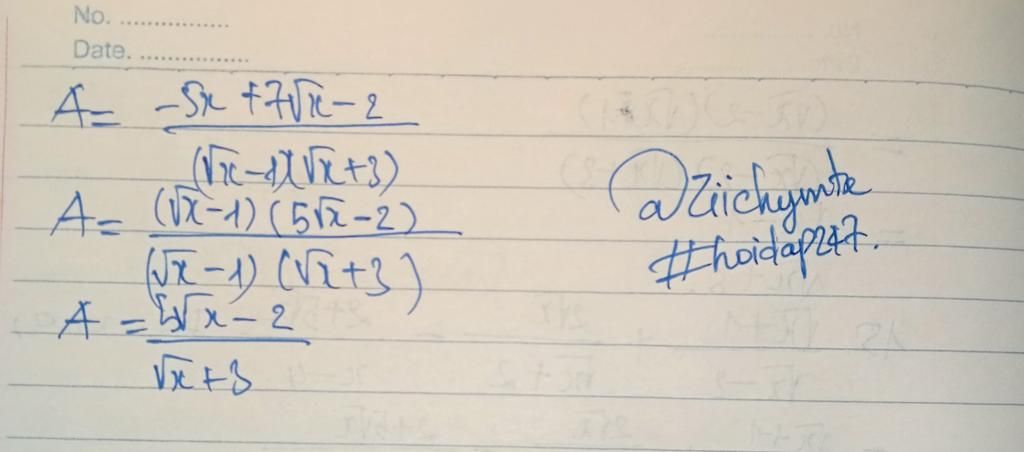 No. ................
Date. ................
A = -5x + 7√x - 2
(√x - 1)(√x + 3)
A = (√x - 1) (5√x - 2)
(√x - 1) (√x + 3)
A = 5√x - 2
√x + 3
@Ziichymte
#hoidap247.